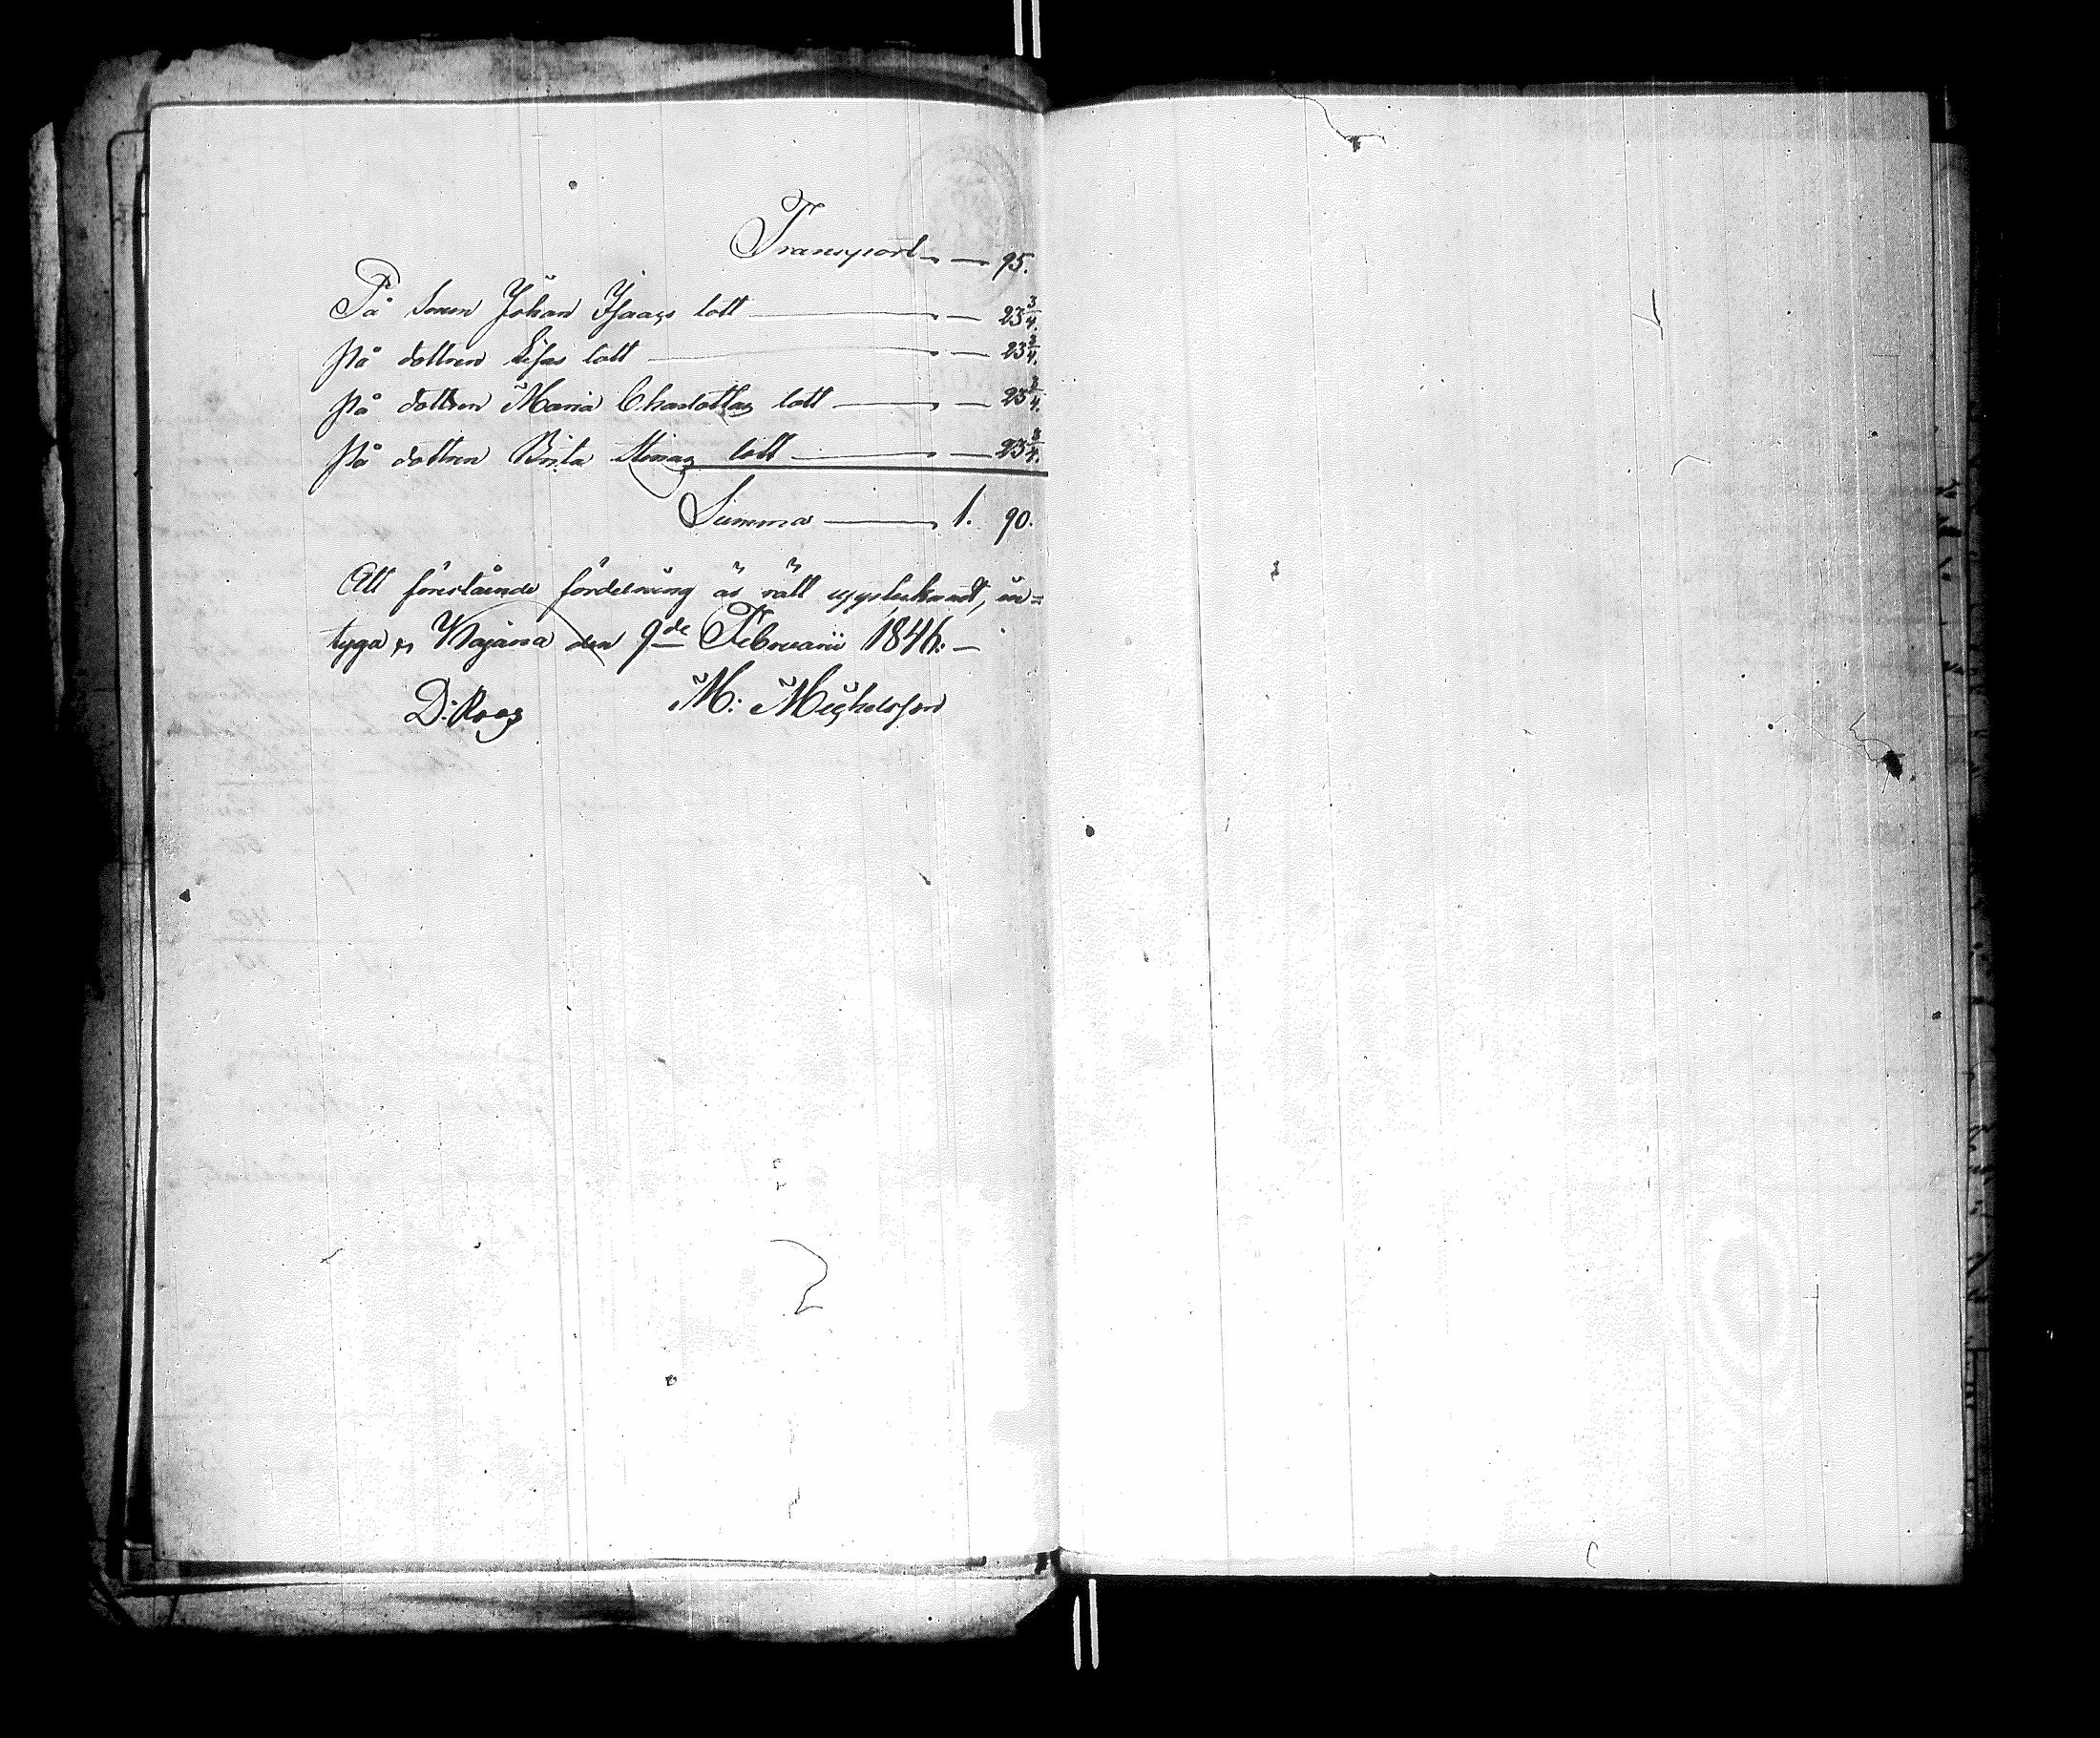 Transport — — 95.
På Sonen Johan Isaacs lott — — 23 3/4.
På dottren Lisas lott — — 23 3/4.
På dottren Maria Charlottas lott — — 23 3/4.
På dottren Brita Stinas lott — — 23 3/4.
Summa — 1. 90.
Att förestående fördelning är rätt uppteknadt, in=
tyga, den 9de Februarii 1846. —
D: Roos M: Michelsson